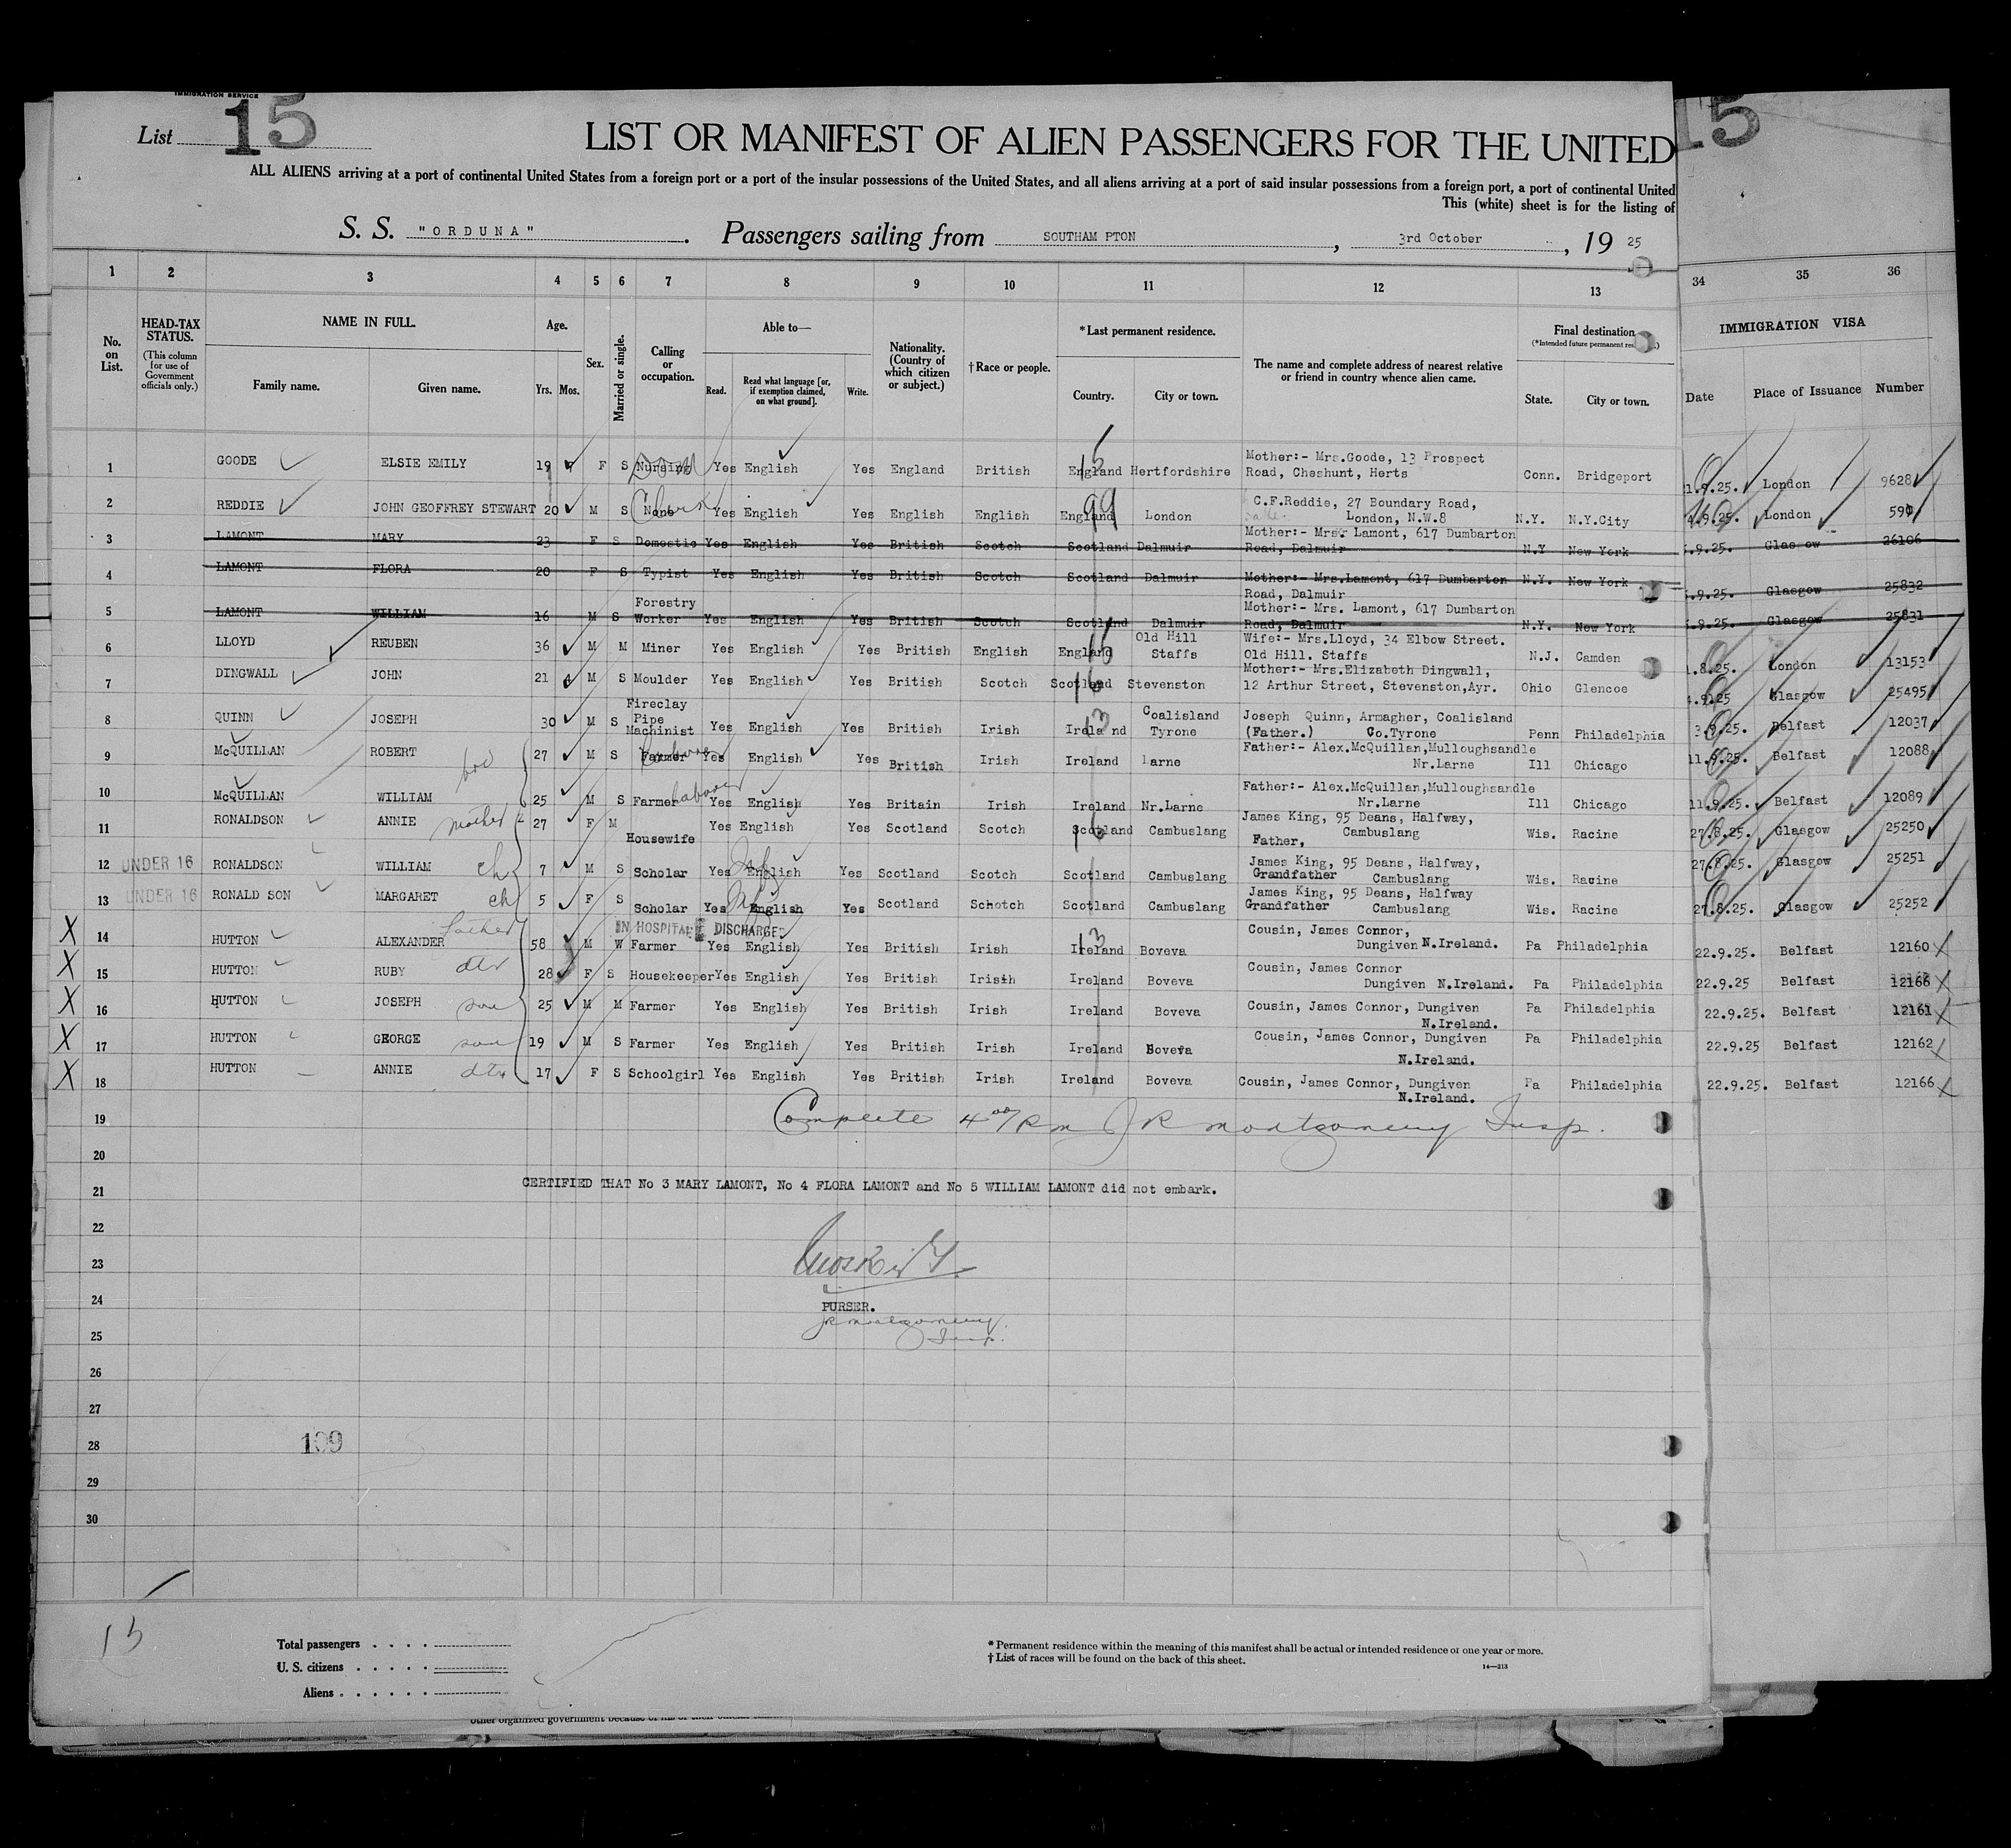 IMMIGRATION SERVICE
List 15
15
LIST OR MANIFEST OF ALIEN PASSENGERS FOR THE UNITED
ALL ALIENS arriving at a port of continental United States from a foreign port or a port of the insular possessions of the United States, and all aliens arriving at a port of said insular possessions from a foreign port, a port of continental United
This (white) sheet is for the listing of
S. S. "ORDUNA" . Passengers sailing from SOUTHAM PTON , 3rd October , 19 25
1 2 3 4 5 6 7 8 9 10 11 12 13 34 35 36
No. on List. HEAD-TAX STATUS. (This column for use of Government officials only.) NAME IN FULL. Family name. Given name. Age. Yrs. Mos. Sex. Married or single. Calling or occupation. Able to— Read. Read what language [or, if exemption claimed, on what ground]. Write. Nationality. (Country of which citizen or subject.) †Race or people. *Last permanent residence. Country. City or town. The name and complete address of nearest relative or friend in country whence alien came. Final destination. State. City or town. IMMIGRATION VISA Date Place of Issuance Number
1 GOODE ELSIE EMILY 19 F S Nursing Dom Yes English Yes England British England 15 Hertfordshire Mother:- Mrs.Goode, 13 Prospect Road, Cheshunt, Herts Conn. Bridgeport 1.9.25. London 9628
2 REDDIE JOHN GEOFFREY STEWART 20 M S None Clerk Yes English Yes English English England 99 London C.F.Reddie, 27 Boundary Road, London, N.W.8 N.Y. N.Y.City 4.9.25. London 599
3 LAMONT MARY 23 F S Domestic Yes English Yes British Scotch Scotland Dalmuir Mother:- Mrs. Lamont, 617 Dumbarton Road, Dalmuir N.Y New York .9.25. Glasgow 26106
4 LAMONT FLORA 20 F S Typist Yes English Yes British Scotch Scotland Dalmuir Mother:- Mrs.Lamont, 617 Dumbarton Road, Dalmuir N.Y. New York .9.25. Glasgow 25832
5 LAMONT WILLIAM 16 M S Forestry Worker Yes English Yes British Scotch Scotland Dalmuir Mother:- Mrs. Lamont, 617 Dumbarton Road, Dalmuir N.Y. New York .9.25. Glasgow 25831
6 LLOYD REUBEN 36 M M Miner Yes English Yes British English England Old Hill Staffs Wife:- Mrs.Lloyd, 34 Elbow Street. Old Hill. Staffs N.J. Camden 1.8.25. London 13153
7 DINGWALL JOHN 21 M S Moulder Yes English Yes British Scotch Scotland 16 Stevenston Mother:- Mrs.Elizabeth Dingwall, 12 Arthur Street, Stevenston,Ayr. Ohio Glencoe 4.9.25 Glasgow 25495
8 QUINN JOSEPH 30 M S Fireclay Pipe Machinist Yes English Yes British Irish Ireland 13 Coalisland Tyrone Joseph Quinn, Armagher, Coalisland (Father.) Co.Tyrone Penn Philadelphia 3.9.25. Belfast 12037
9 McQUILLAN ROBERT bro 27 M S Farmer Yes English Yes British Irish Ireland Larne Father:- Alex.McQuillan,Mulloughsandle Nr.Larne Ill Chicago 11.9.25. Belfast 12088
10 McQUILLAN WILLIAM 25 M S Farmer laborer Yes English Yes Britain Irish Ireland Nr.Larne Father:- Alex.McQuillan,Mulloughsandle Nr.Larne Ill Chicago 11.9.25. Belfast 12089
11 RONALDSON ANNIE mother 27 F M Housewife Yes English Yes Scotland Scotch Scotland 16 Cambuslang James King, 95 Deans, Halfway, Cambuslang Father, Wis. Racine 27.8.25. Glasgow 25250
12 UNDER 16 RONALDSON WILLIAM ch 7 M S Scholar Yes English Yes Scotland Scotch Scotland Cambuslang James King, 95 Deans, Halfway, Grandfather Cambuslang Wis. Racine 27.8.25. Glasgow 25251
13 UNDER 16 RONALD SON MARGARET ch 5 F S Scholar Yes English Yes Scotland Schotch Scotland Cambuslang James King, 95 Deans, Halfway Grandfather Cambuslang Wis. Racine 27.8.25. Glasgow 25252
IN HOSPITAL DISCHARGED
X 14 HUTTON ALEXANDER father 58 M W Farmer Yes English Yes British Irish Ireland 13 Boveva Cousin, James Connor, Dungiven N.Ireland. Pa Philadelphia 22.9.25. Belfast 12160
X 15 HUTTON RUBY dtr 28 F S Housekeeper Yes English Yes British Iristh Ireland Boveva Cousin, James Connor Dungiven N.Ireland. Pa Philadelphia 22.9.25 Belfast 12166
X 16 HUTTON JOSEPH son 25 M M Farmer Yes English Yes British Irish Ireland Boveva Cousin, James Connor, Dungiven N.Ireland. Pa Philadelphia 22.9.25. Belfast 12161
X 17 HUTTON GEORGE son 19 M S Farmer Yes English Yes British Irish Ireland Boveva Cousin, James Connor, Dungiven N.Ireland. Pa Philadelphia 22.9.25 Belfast 12162
X 18 HUTTON ANNIE dtr 17 F S Schoolgirl Yes English Yes British Irish Ireland Boveva Cousin, James Connor, Dungiven N.Ireland. Pa Philadelphia 22.9.25. Belfast 12166
19 Complete 4 00/ P m J R Montgomery Insp.
20
21 CERTIFIED THAT No 3 MARY LAMONT, No 4 FLORA LAMONT and No 5 WILLIAM LAMONT did not embark.
22
23
24 PURSER.
JR Montgomery
25 Insp.
26
27
28 109
29
30
15
Total passengers . . . .
U. S. citizens . . . . .
Aliens . . . . . .
* Permanent residence within the meaning of this manifest shall be actual or intended residence of one year or more.
† List of races will be found on the back of this sheet.
14—213
other organized government because of his or their official